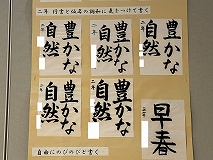 二年 行書と仮名の調和に気をつけて書く
豊かな
自然
豊かな
自然
豊かな
自然
豊かな
自然
豊かな
自然
早春
自由にのびのびと書く